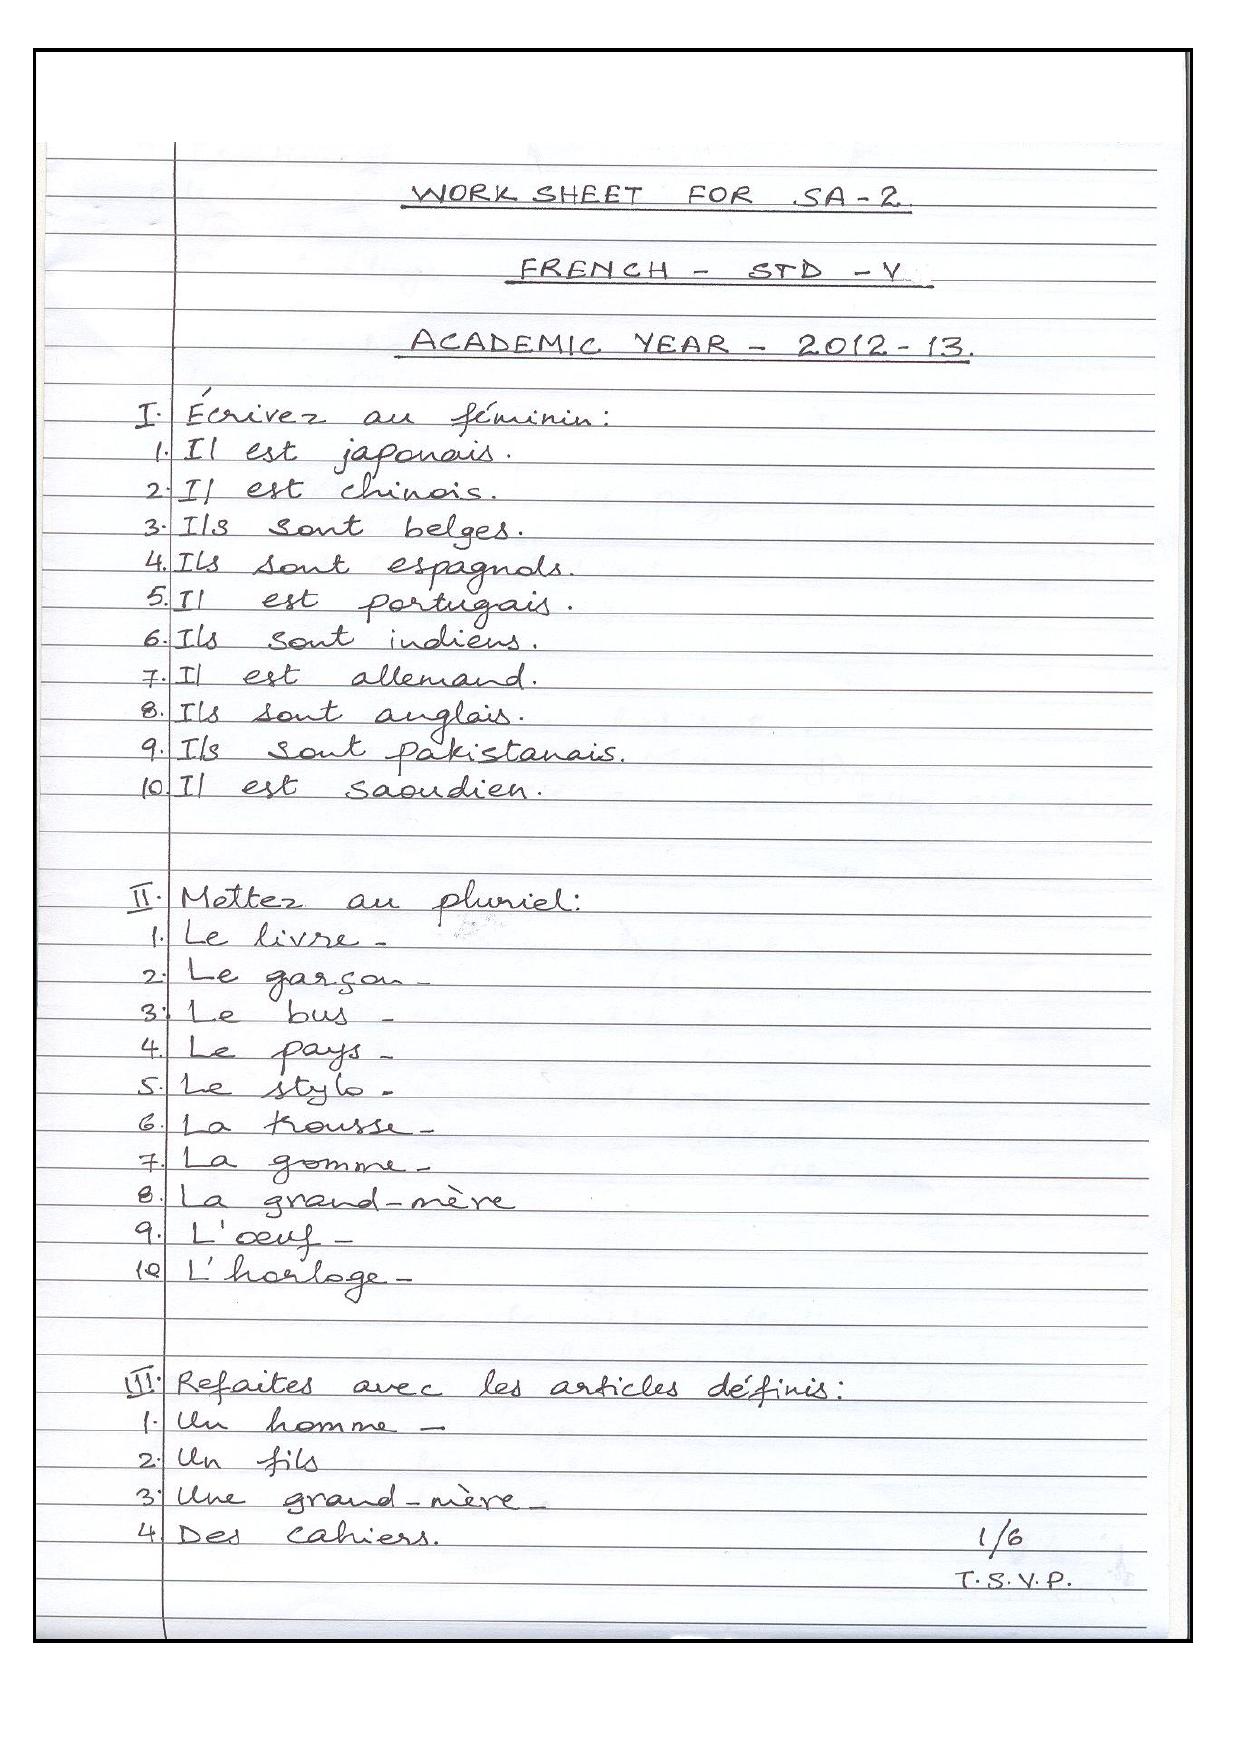 WORK SHEET FOR SA-2
FRENCH - STD - V
ACADEMIC YEAR - 2012-13.
I. Écrivez au féminin:
1. Il est japonais.
2. Il est chinois.
3. Ils sont belges.
4. Ils sont espagnols.
5. Il est portugais.
6. Ils sont indiens.
7. Il est allemand.
8. Ils sont anglais.
9. Ils sont pakistanais.
10. Il est saoudien.
II. Mettez au pluriel:
1. Le livre -
2. Le garçon -
3. Le bus -
4. Le pays -
5. Le stylo -
6. La trousse -
7. La gomme -
8. La grand-mère
9. L'œuf -
10. L'horloge -
III. Refaites avec les articles définis:
1. Un homme -
2. Un fils
3. Une grand-mère -
4. Des cahiers.
1/6
T.S.V.P.